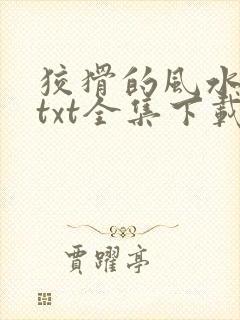 狡猾的風水
txt全集下載
賈躍亭